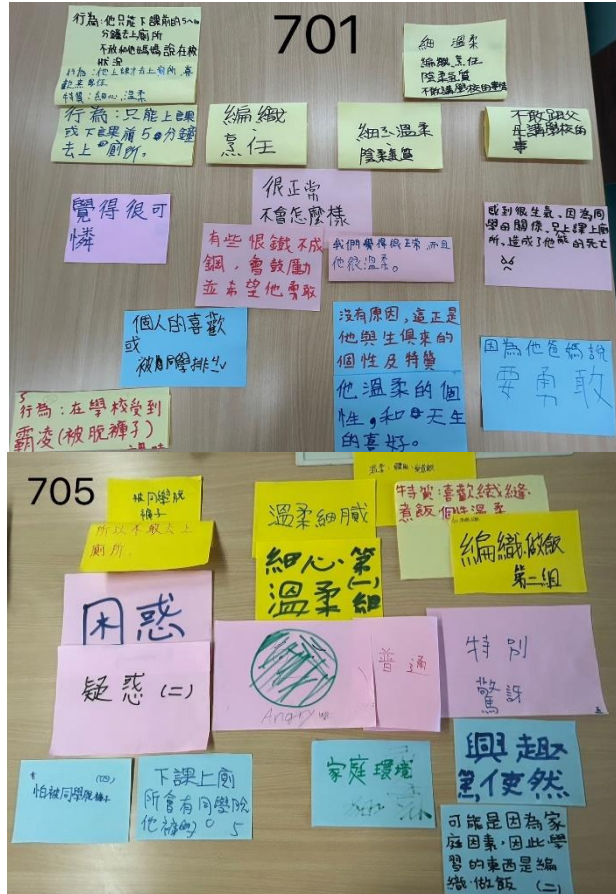 701
行為:他只能下課前的5~10
分鐘去上廁所
不敢和他媽媽說在校
狀況
特質:細心、溫柔
細 溫柔
編織、烹任
陰柔氣質
不敢講學校的事情
行為:只能上課
或下課前5分鐘
去上廁所。
編織、
烹任
細心溫柔
陰柔氣質
不敢跟父
母講學校的
事
覺得很可
憐
很正常
不會怎麼樣
有些恨鐵不成
鋼,會鼓勵
並希望他勇敢
我們覺得很正常,而且
他很溫柔。
感到很生氣,因為同
學母關係,只上課上廁
所,造成了他的死亡
個人的喜歡
或
被同學排斥
沒有原因,這正是
他與生俱來的
個性及特質
他溫柔的個
性,和天生
的喜好。
因為他爸媽說
要勇敢
5
行為:在學校受到
霸凌(被脫褲子)
705
被同學脫
褲子
所以不敢去上
廁所.
溫柔細膩
細心、第
溫柔(一)組
特質:喜歡織縫、
煮飯個性溫柔
編織、做飯
第二組
困惑
疑惑(二)
Angry
普通
特別
驚訝
怕被同學脫褲子
下課上廁
所會有同學脫
他褲子。 5
家庭環境
興趣
使然
可能是因為家
庭因素,因此學
習的東西是編
織、做飯 (二)